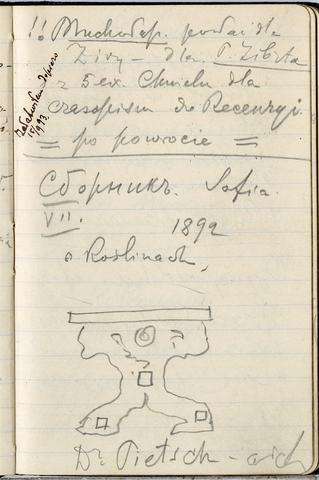 !! Muchołap. podać dla
Živy – dla P. Zibrta
z 5 ex. Chmielu dla
czasopism do Recenzyi.
= po powrocie =
15/1 1913.
Сборникъ. Sofia.
VII. 1892
o Roślinach,
Dr. Pietsch –